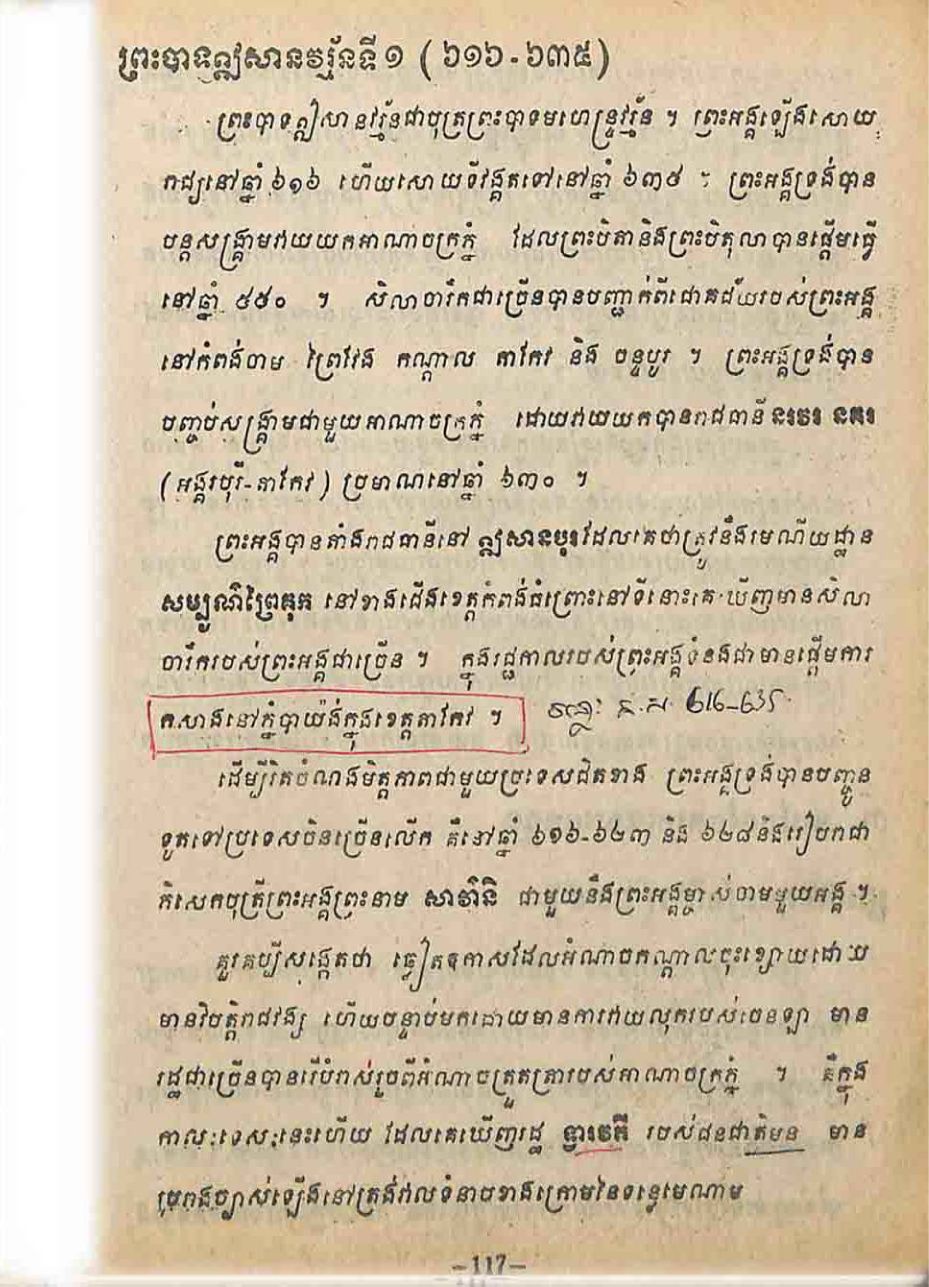 ព្រះបាទឦសានវរ្ម័នទី ១ ( ៦១៦ - ៦៣៥ )
ព្រះបាទឦសានវរ្ម័នជាបុត្រព្រះបាទមហេន្ទ្រវរ្ម័ន ។ ព្រះអង្គឡើងសោយ
រាជ្យនៅឆ្នាំ ៦១៦ ហើយសោយទីវង្គតទៅនៅឆ្នាំ ៦៣៥ ។ ព្រះអង្គទ្រង់បាន
បន្តសង្គ្រាមវាយយកអាណាចក្រភ្នំ ដែលព្រះបិតានិងព្រះបិតុលាបានផ្ដើមធ្វើ
នៅឆ្នាំ ៥៥០ ។ សិលាចារឹកជាច្រើនបានបញ្ជាក់ពីជោគជ័យរបស់ព្រះអង្គ
នៅកំពង់ចាម ព្រៃវែង កណ្ដាល តាកែវ និង ចន្ទបូរ ។ ព្រះអង្គទ្រង់បាន
បញ្ចប់សង្គ្រាមជាមួយអាណាចក្រភ្នំ ដោយវាយយកបានរាជធានីនរវរ នគរ
(អង្គរបុរី-តាកែវ) ប្រមាណនៅឆ្នាំ ៦៣០ ។
ព្រះអង្គបានតាំងរាជធានីនៅ ឦសានបុរដែលគេថាត្រូវនឹងរមណីយដ្ឋាន
សម្បូណ៌ព្រៃគុក នៅខាងជើងខេត្តកំពង់ធំព្រោះនៅទីនោះគេឃើញមានសិលា
ចារឹករបស់ព្រះអង្គជាច្រើន ។ ក្នុងរជ្ជកាលរបស់ព្រះអង្គទំនងជាមានផ្ដើមការ
កសាងនៅភ្នំបាយ៉ង់ក្នុងខេត្តតាកែវ ។ គ.ស. 616-635
ដើម្បីរឹតចំណងមិត្តភាពជាមួយប្រទេសជិតខាង ព្រះអង្គទ្រង់បានបញ្ជូន
ទូតទៅប្រទេសចិនច្រើនលើក គឺនៅឆ្នាំ ៦១៦-៦២៣ និង ៦២៨និងរៀបរាជា
ភិសេកបុត្រីព្រះអង្គព្រះនាម សាវ៌ានី ជាមួយនឹងព្រះអង្គម្ចាស់ចាមមួយអង្គ ។
គួរគប្បីសង្កេតថា ឆ្លៀតឱកាសដែលអំណាចកណ្ដាលចុះខ្សោយដោយ
មានវិបត្តិរាជវង្ស ហើយបន្ទាប់មកដោយមានការវាយលុករបស់ចេនឡា មាន
រដ្ឋជាច្រើនបានរើបំរាស់រួចពីអំណាចត្រួតត្រារបស់អាណាចក្រភ្នំ ។ គឺក្នុង
កាលៈទេសៈនេះហើយ ដែលគេឃើញរដ្ឋ ទ្វារវតី របស់ជនជាតិមន មាន
ប្រភពច្បាស់ឡើងនៅត្រង់វាលទំនាបខាងក្រោមនៃទន្លេមេណាម
-117-